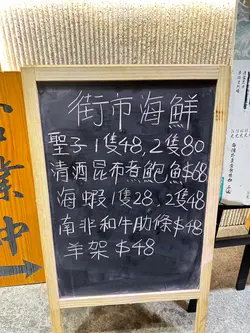 街市海鮮
聖子1隻48,2隻80
清酒昆布煮鮑魚$68
海蝦1隻28,2隻48
南非和牛肋條$48
羊架$48
業中